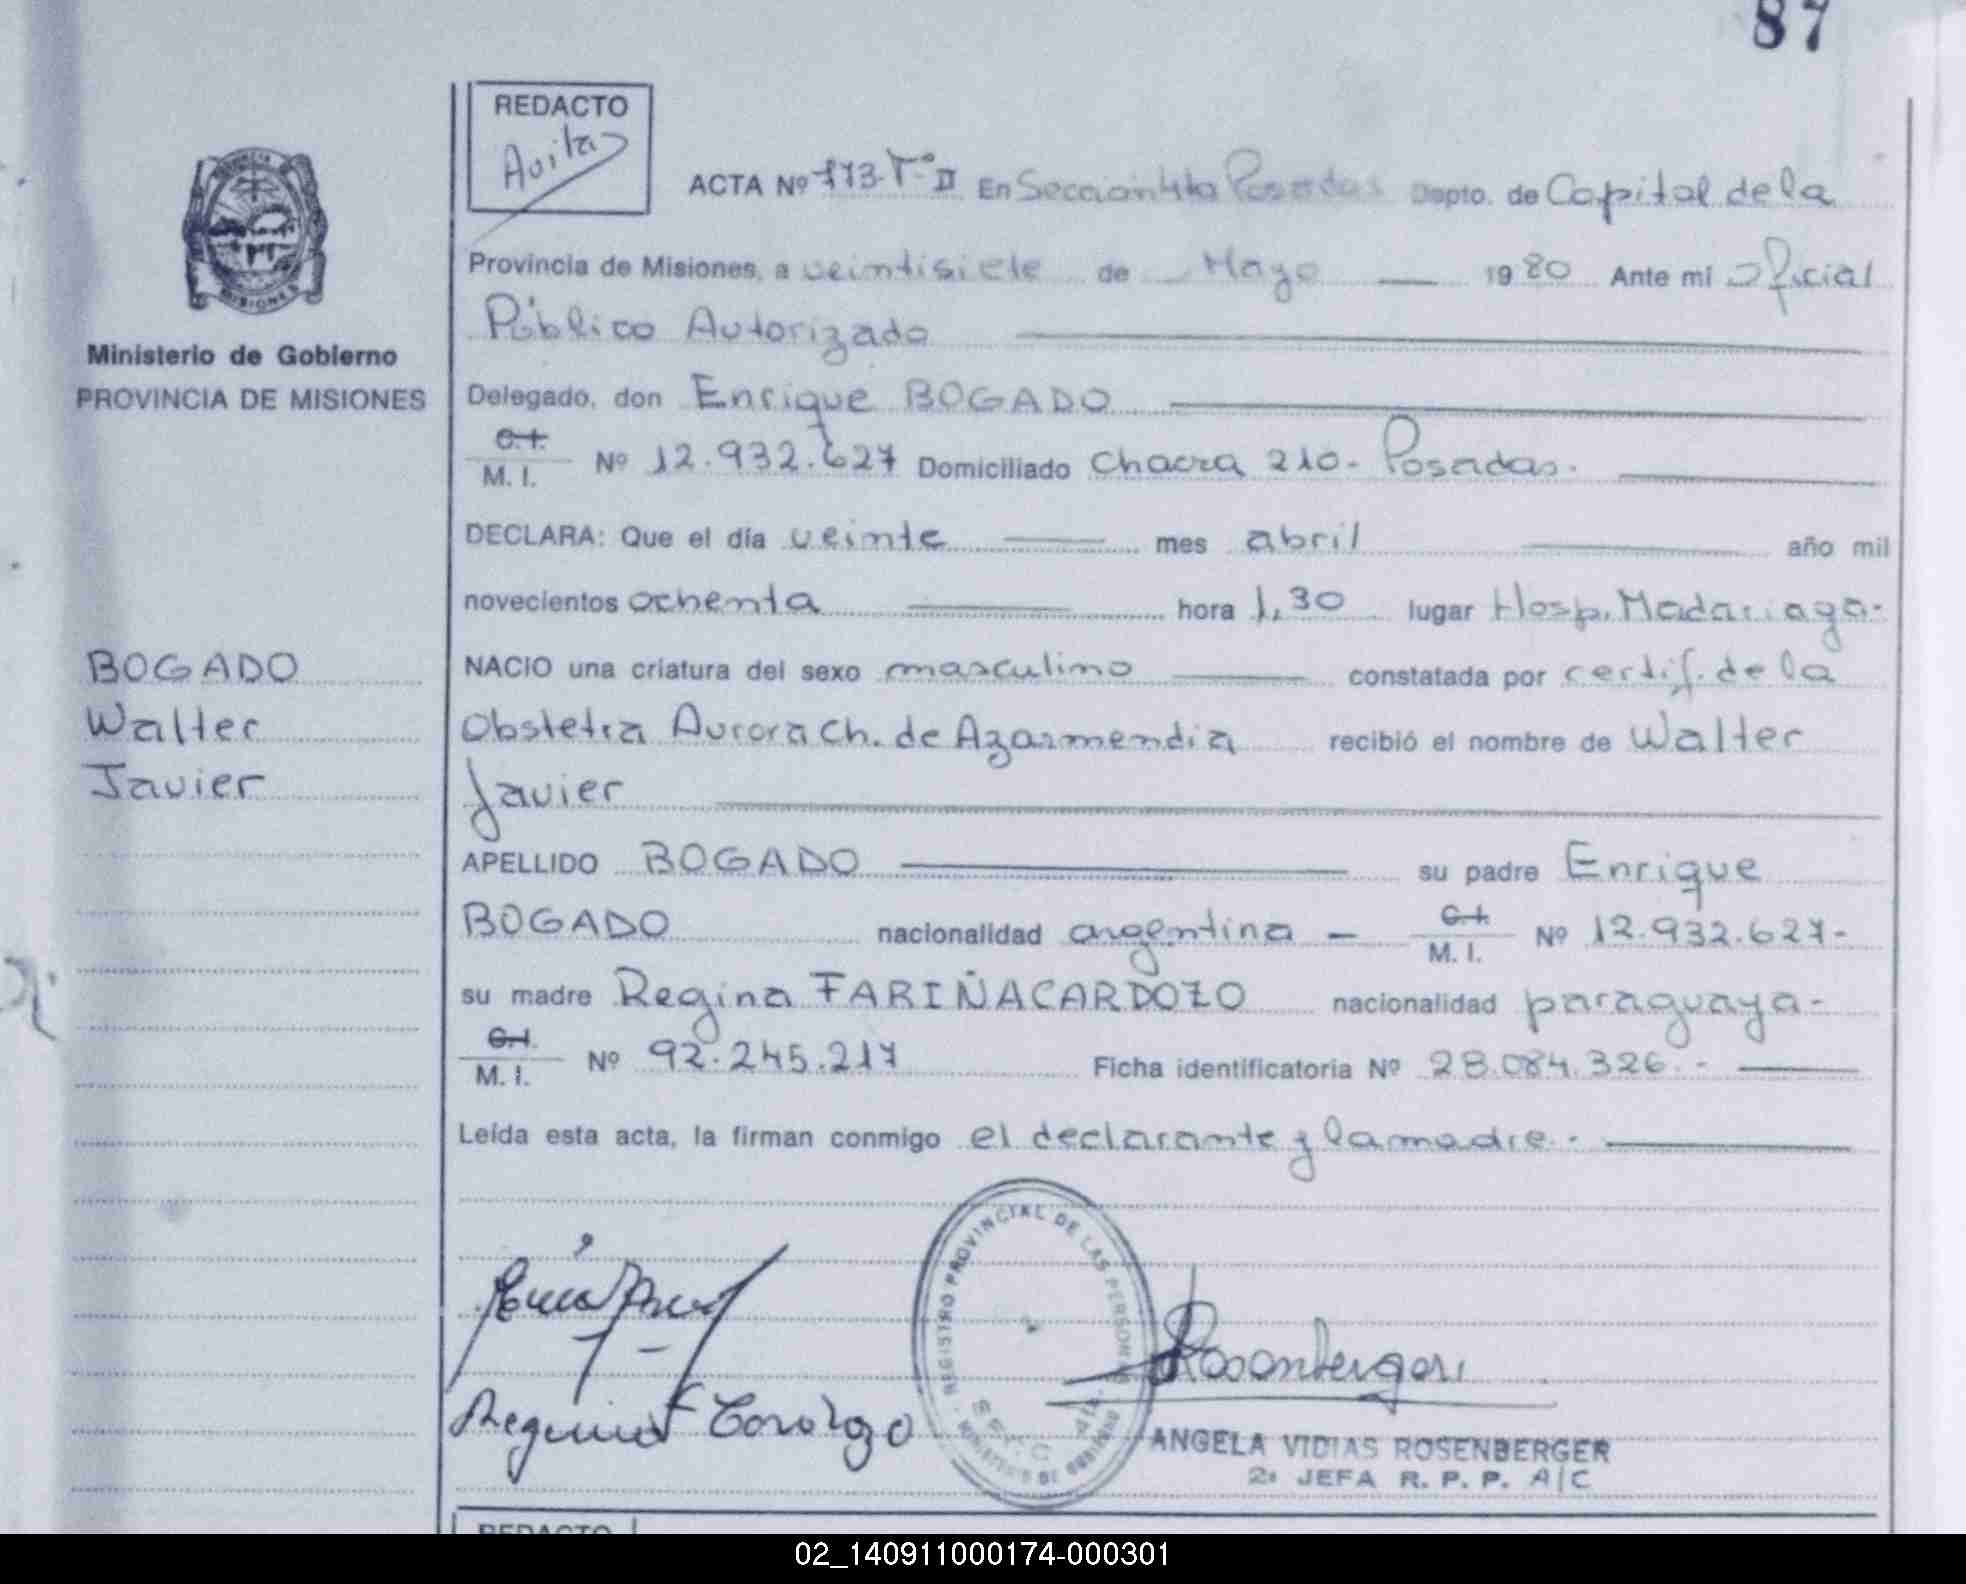 87
REDACTO
Avila
ACTA Nº 173-Tº II En Sección 4ta Posadas Depto. de Capital de la
Provincia de Misiones, a veintisiete de Mayo 1980 Ante mi Oficial
Público Autorizado
Delegado, don Enrique BOGADO
C.I.
M. I. Nº 12.932.627 Domiciliado Chacra 210- Posadas.
DECLARA: Que el día veinte mes abril año mil
novecientos ochenta hora 1,30 lugar Hosp. Madariaga-
NACIO una criatura del sexo masculino constatada por certif. de la
Obstetra Aurora Ch. de Azarmendia recibió el nombre de Walter
Javier
APELLIDO BOGADO su padre Enrique
BOGADO nacionalidad argentina - C.I.
M. I. Nº 12.932.627-
su madre Regina FARIÑA CARDOZO nacionalidad paraguaya-
C.I.
M. I. Nº 92.245.217 Ficha identificatoria Nº 28.084.326.-
Leída esta acta, la firman conmigo el declarante y la madre.-
MISIONES
Ministerio de Gobierno
PROVINCIA DE MISIONES
BOGADO
Walter
Javier
REGISTRO PROVINCIAL DE LAS PERSONAS
SECC 4ta.
MINISTERIO DE GOBIERNO
Rosenberger
ANGELA VIDIAS ROSENBERGER
2ª JEFA R. P. P. A/C
REDACTO
02_140911000174-000301